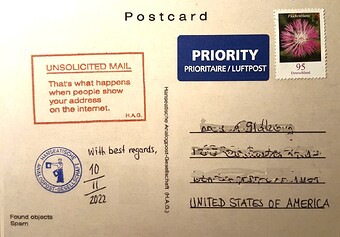 Postcard
UNSOLICITED MAIL
That's what happens
when people show
your address
on the internet.
H.A.G.
PRIORITY
PRIORITAIRE / LUFTPOST
95
Deutschland
Hanseatische Analogpost-Gesellschaft (H.A.G.)
HANSEATISCHE
ANALOGPOST-GESELLSCHAFT
With best regards,
10
11
2022
UNITED STATES OF AMERICA
Found objects
Spam